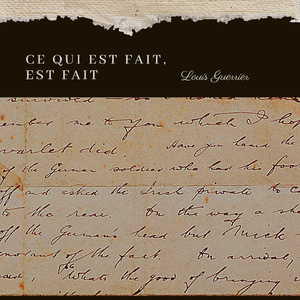 CE QUI EST FAIT,
EST FAIT
Louis Guerrier
survived
ember me to you which I hop
warlet did. Have you heard the
of the German soldier who had his foo
off and asked the Irish private to ca
to the rear. On the way a she
off the German's head but Mick
ignorant of the fact. On arrival,
said, "Whats the good of bringing